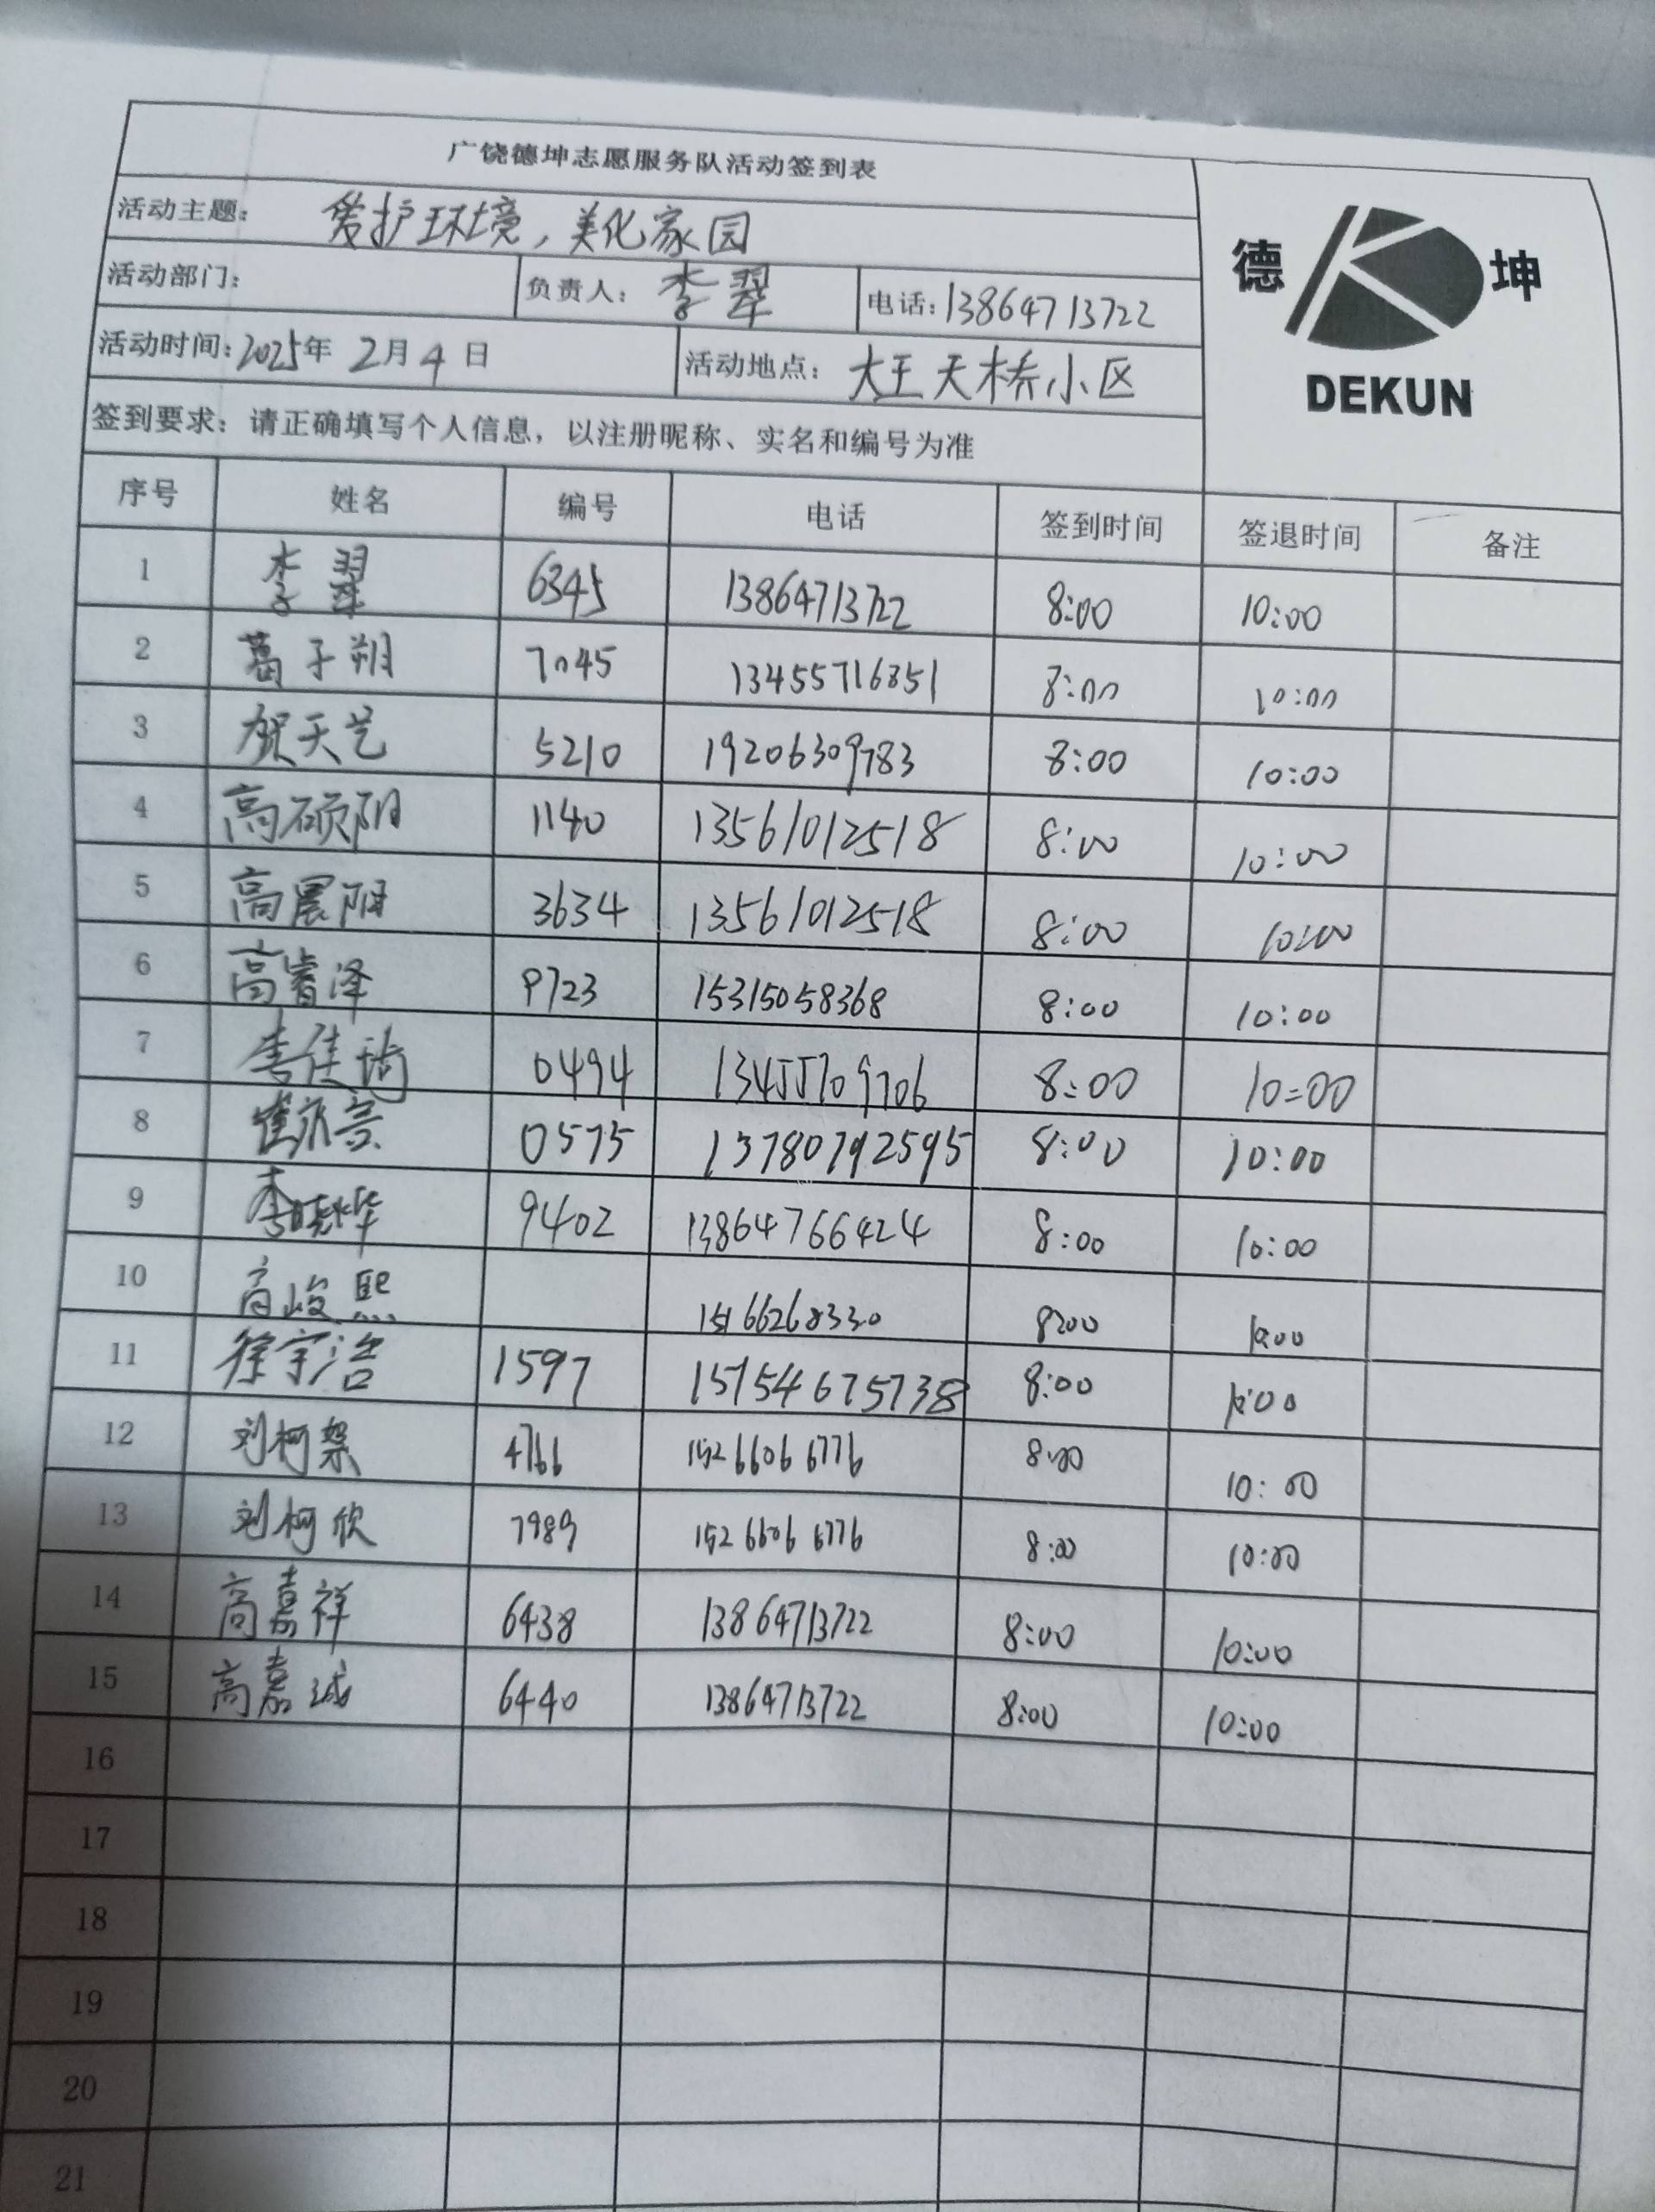 广饶德坤志愿服务队活动签到表
活动主题: 爱护环境,美化家园
德 坤
DEKUN
活动部门: 负责人: 李翠 电话:13864713722
活动时间:2025年 2月 4 日 活动地点: 大王天桥小区
签到要求: 请正确填写个人信息, 以注册昵称、实名和编号为准
序号 姓名 编号 电话 签到时间 签退时间 备注
1 李翠 6345 13864713722 8:00 10:00
2 葛子朔 7045 13455716851 8:00 10:00
3 贺天艺 5210 19206309783 8:00 10:00
4 高硕阳 1140 13561012518 8:00 10:00
5 高晨阳 3634 13561012518 8:00 10:00
6 高睿泽 9723 15315058368 8:00 10:00
7 李佳琦 0494 13455709706 8:00 10:00
8 崔永亮 0575 13780792595 8:00 10:00
9 李晓烨 9402 13864766424 8:00 10:00
10 高峻熙 15166268330 8:00 10:00
11 徐宇浩 1597 8:00 10:00
12 刘柯 4766 15266066776 8:00 10:00
13 刘柯欣 7989 15266066776 8:00 10:00
14 高嘉祥 6438 13864713722 8:00 10:00
15 高嘉诚 6440 13864713722 8:00 10:00
16
17
18
19
20
21